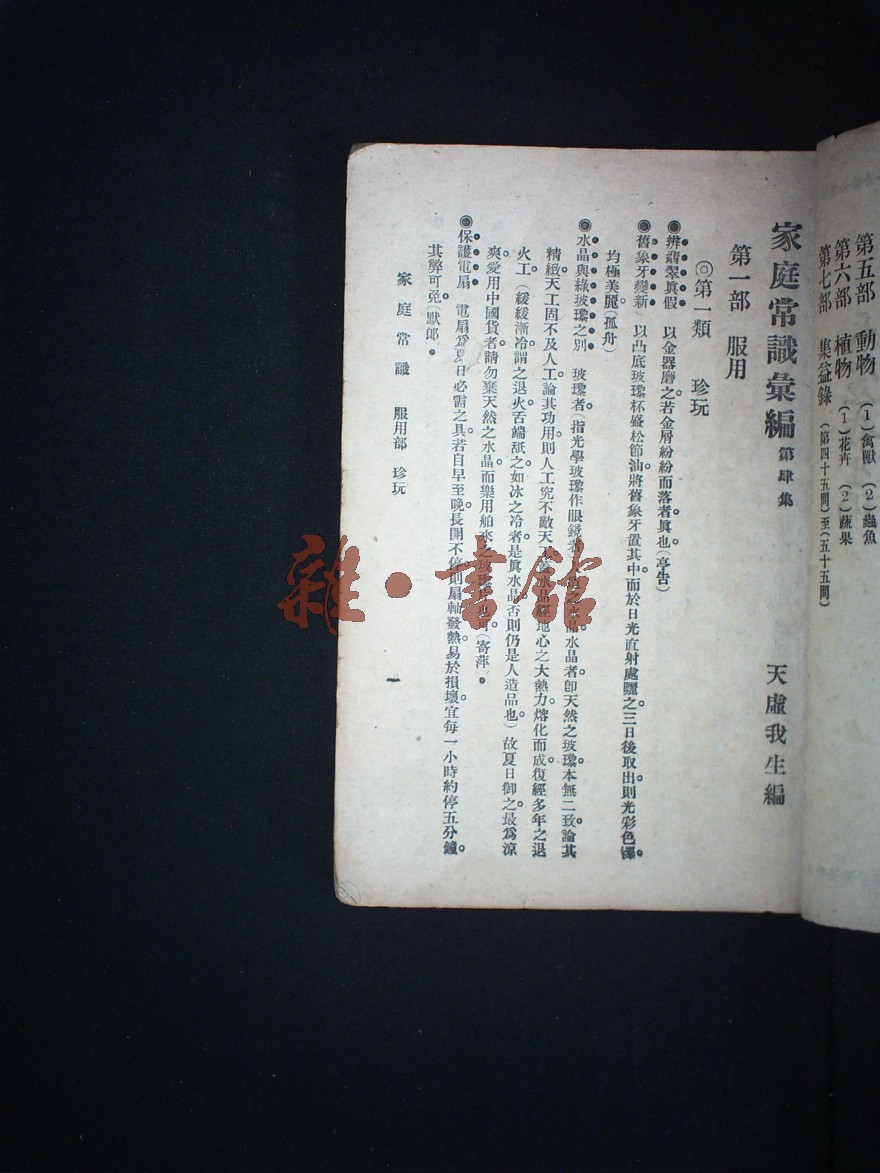 第五部　動物　（1）禽獸　（2）蟲魚
第六部　植物　（1）花卉　（2）蔬果
第七部　集益錄　（第四十五問）至（五十五問）
家庭常識彙編　第肆集　天虛我生編
第一部　服用
◎第一類　珍玩
◉辨翡翠眞假　以金器磨之若金屑紛紛而落者眞也（亭告）
◉舊象牙變新　以凸底玻璨杯盛松節油將舊象牙置其中而於日光直射處曬之三日後取出則光彩色澤。
均極美麗（孤舟）
◉水晶與綠玻璨之別　玻璨者（指光學玻璨作眼鏡者）水晶者卽天然之玻璨本無二致論其
精緻天工固不及人工論其功用則人工究不敵天水晶經地心之大熱力熔化而成復經多年之退
火工。（緩緩漸冷謂之退火舌端舐之如冰之冷者是眞水晶否則仍是人造品也）故夏日御之最爲涼
爽愛用中國貨者請勿棄天然之水晶而樂用舶來之玻璨（寄萍）。
◉保護電扇　電扇爲夏日必需之具若自早至晚長開不停則扇軸發熱易於損壞宜每一小時約停五分鐘。
其弊可免（默郎）。
家庭常識　服用部　珍玩
一
雜·書館